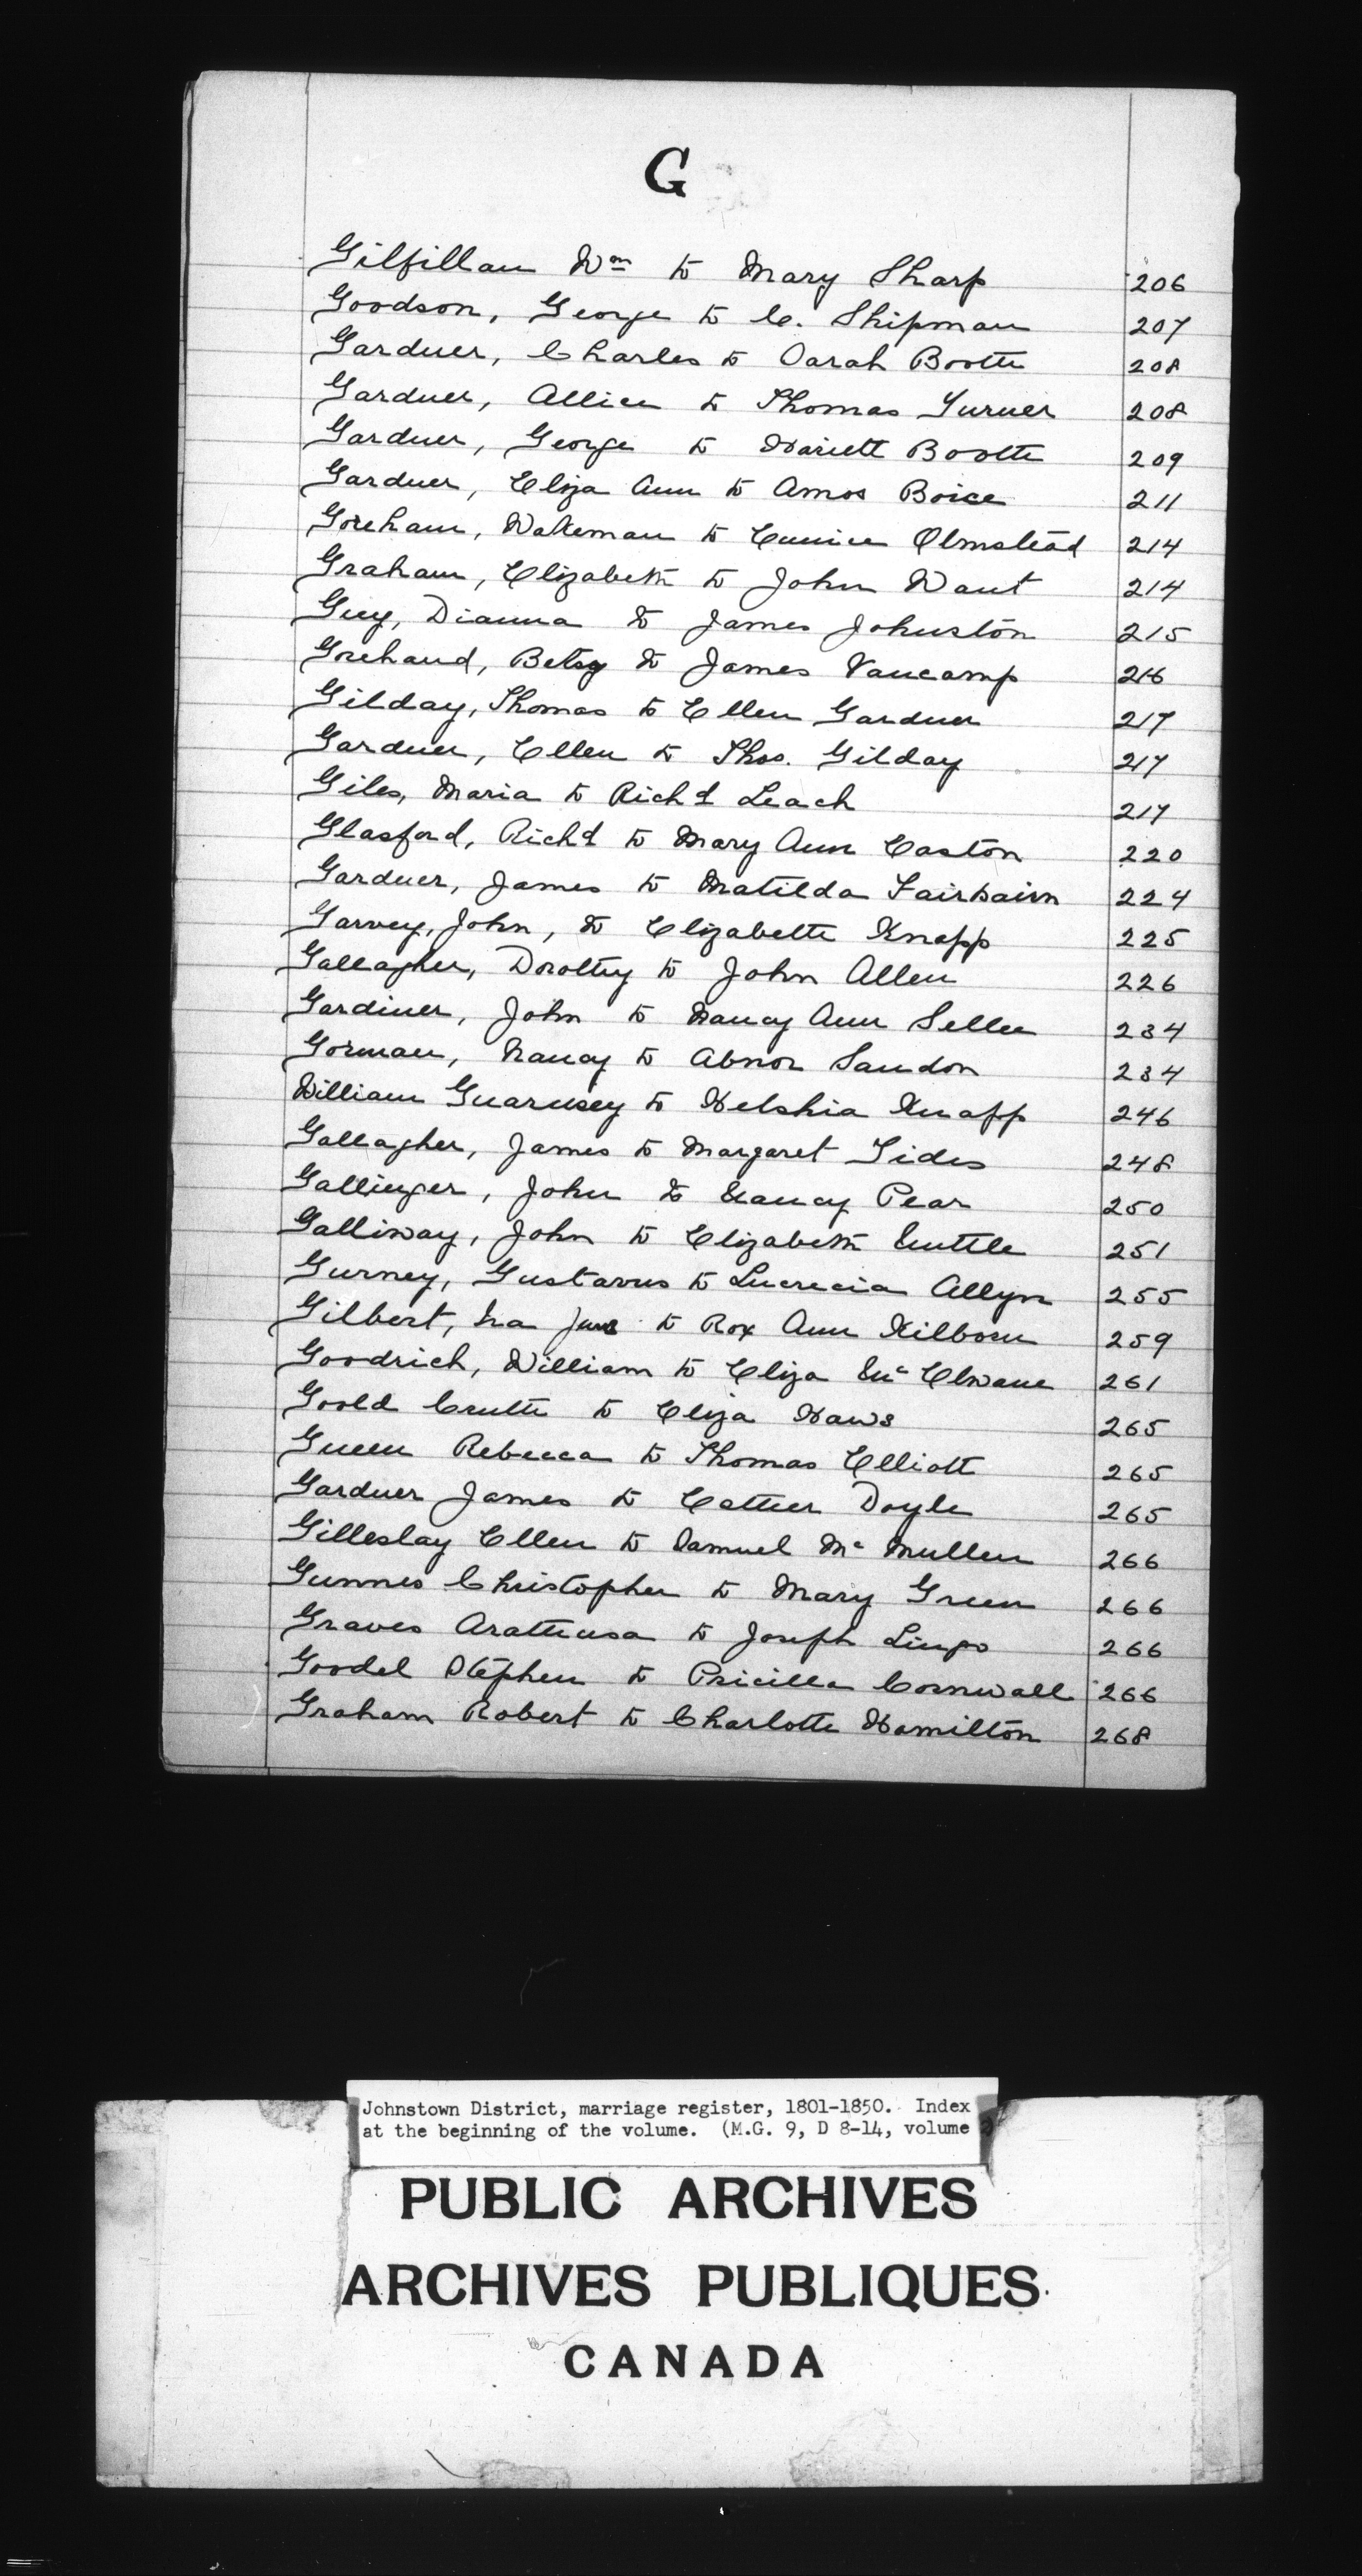 G
Gilfillan Wm to Mary Sharp 206
Goodson, George to C. Shipman 207
Gardner, Charles to Sarah Booth 208
Gardner, Allice to Thomas Turner 208
Gardner, George to Hariett Booth 209
Gardner, Eliza Ann to Amos Boice 211
Goreham, Wakeman to Eunice Olmstead 214
Graham, Elizabeth to John Want 214
Guy, Dianna to James Johnston 215
Grehaud, Betsy to James Vancamp 216
Gilday, Thomas to Ellen Gardner 217
Gardner, Ellen to Thos. Gilday 217
Giles, Maria to Richd Leach 217
Glasford, Richd to Mary Ann Easton 220
Gardner, James to Matilda Fairbairn 224
Garvey, John, to Elizabeth Knapp 225
Gallagher, Dorothy to John Allen 226
Gardiner, John to Nancy Ann Seller 234
Gorman, Nancy to Abnor Landon 234
William Guarnsey to Helshia Knapp 246
Gallagher, James to Margaret Tides 248
Gallinger, John to Nancy Pear 250
Galliway, John to Elizabeth Suttle 251
Gurney, Gustavus to Lucrecia Allyn 255
Gilbert, Ira to Rox Ann Kilborn 259
Goodrich, William to Eliza McElwane 261
Goold to Eliza Haws 265
Green Rebecca to Thomas Elliott 265
Gardner James to Doyle 265
Gilleslay Ellen to Samuel Mc Mullen 266
Gunnes Christopher to Mary Green 266
Graves Arathusa to Joseph Lingo 266
Goodel Stephen to Pricilla Cornwall 266
Graham Robert to Charlotte Hamilton 268
Johnstown District, marriage register, 1801-1850. Index
at the beginning of the volume. (M.G. 9, D 8-14, volume
PUBLIC ARCHIVES
ARCHIVES PUBLIQUES
CANADA